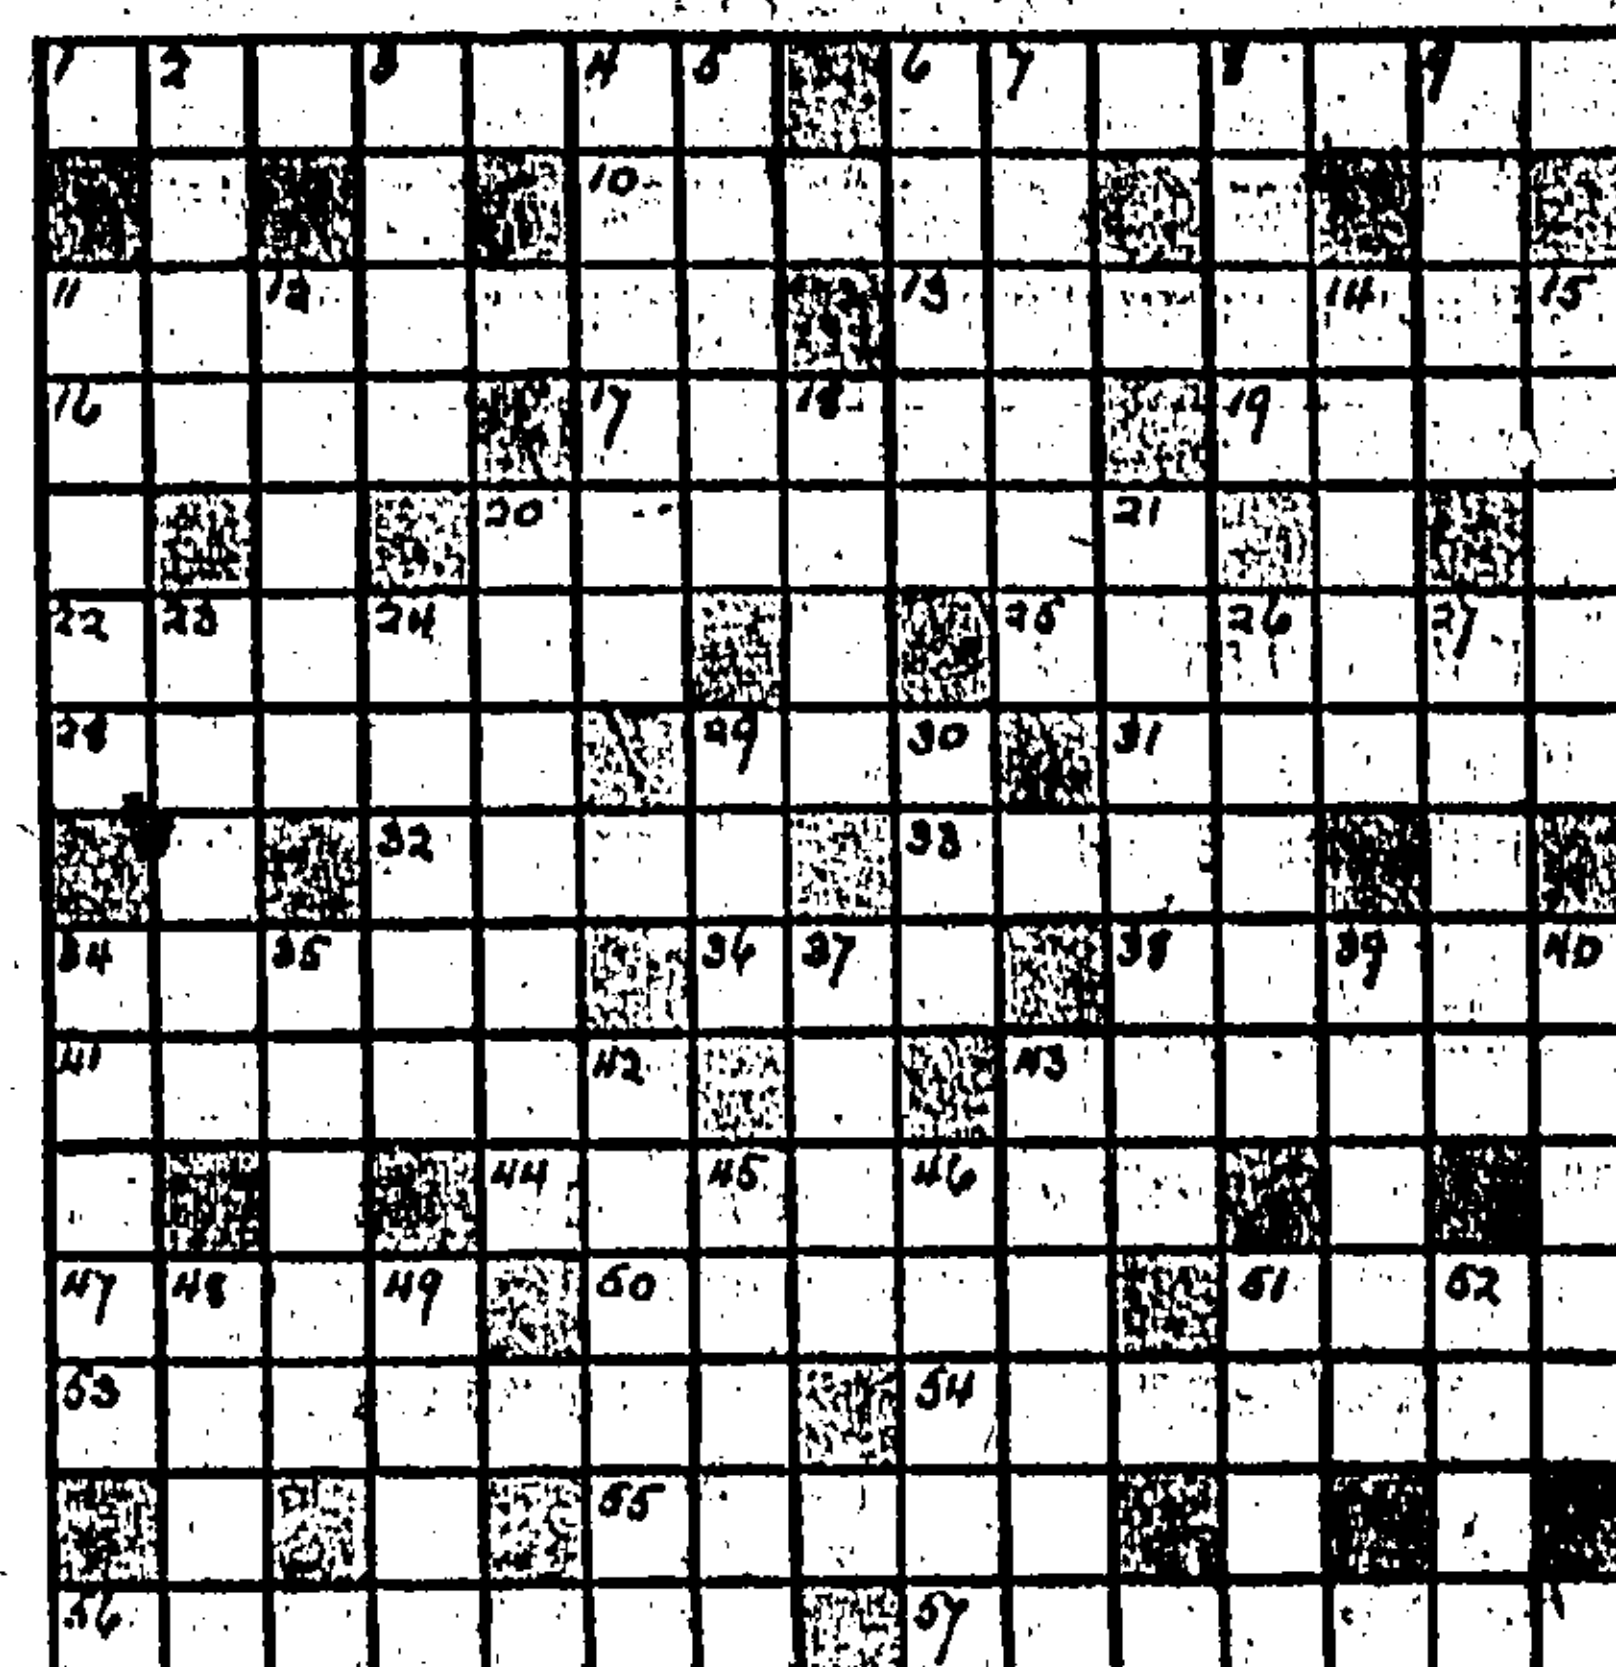 1 2 3 4 5 6 7 8 9
10
11 12 13 14 15
16 17 18 19
20 21
22 23 24 25 26 27
28 29 30 31
32 33
34 35 36 37 38 39 40
41 42 43
44 45 46
47 48 49 50 51 52
53 54
55
56 57